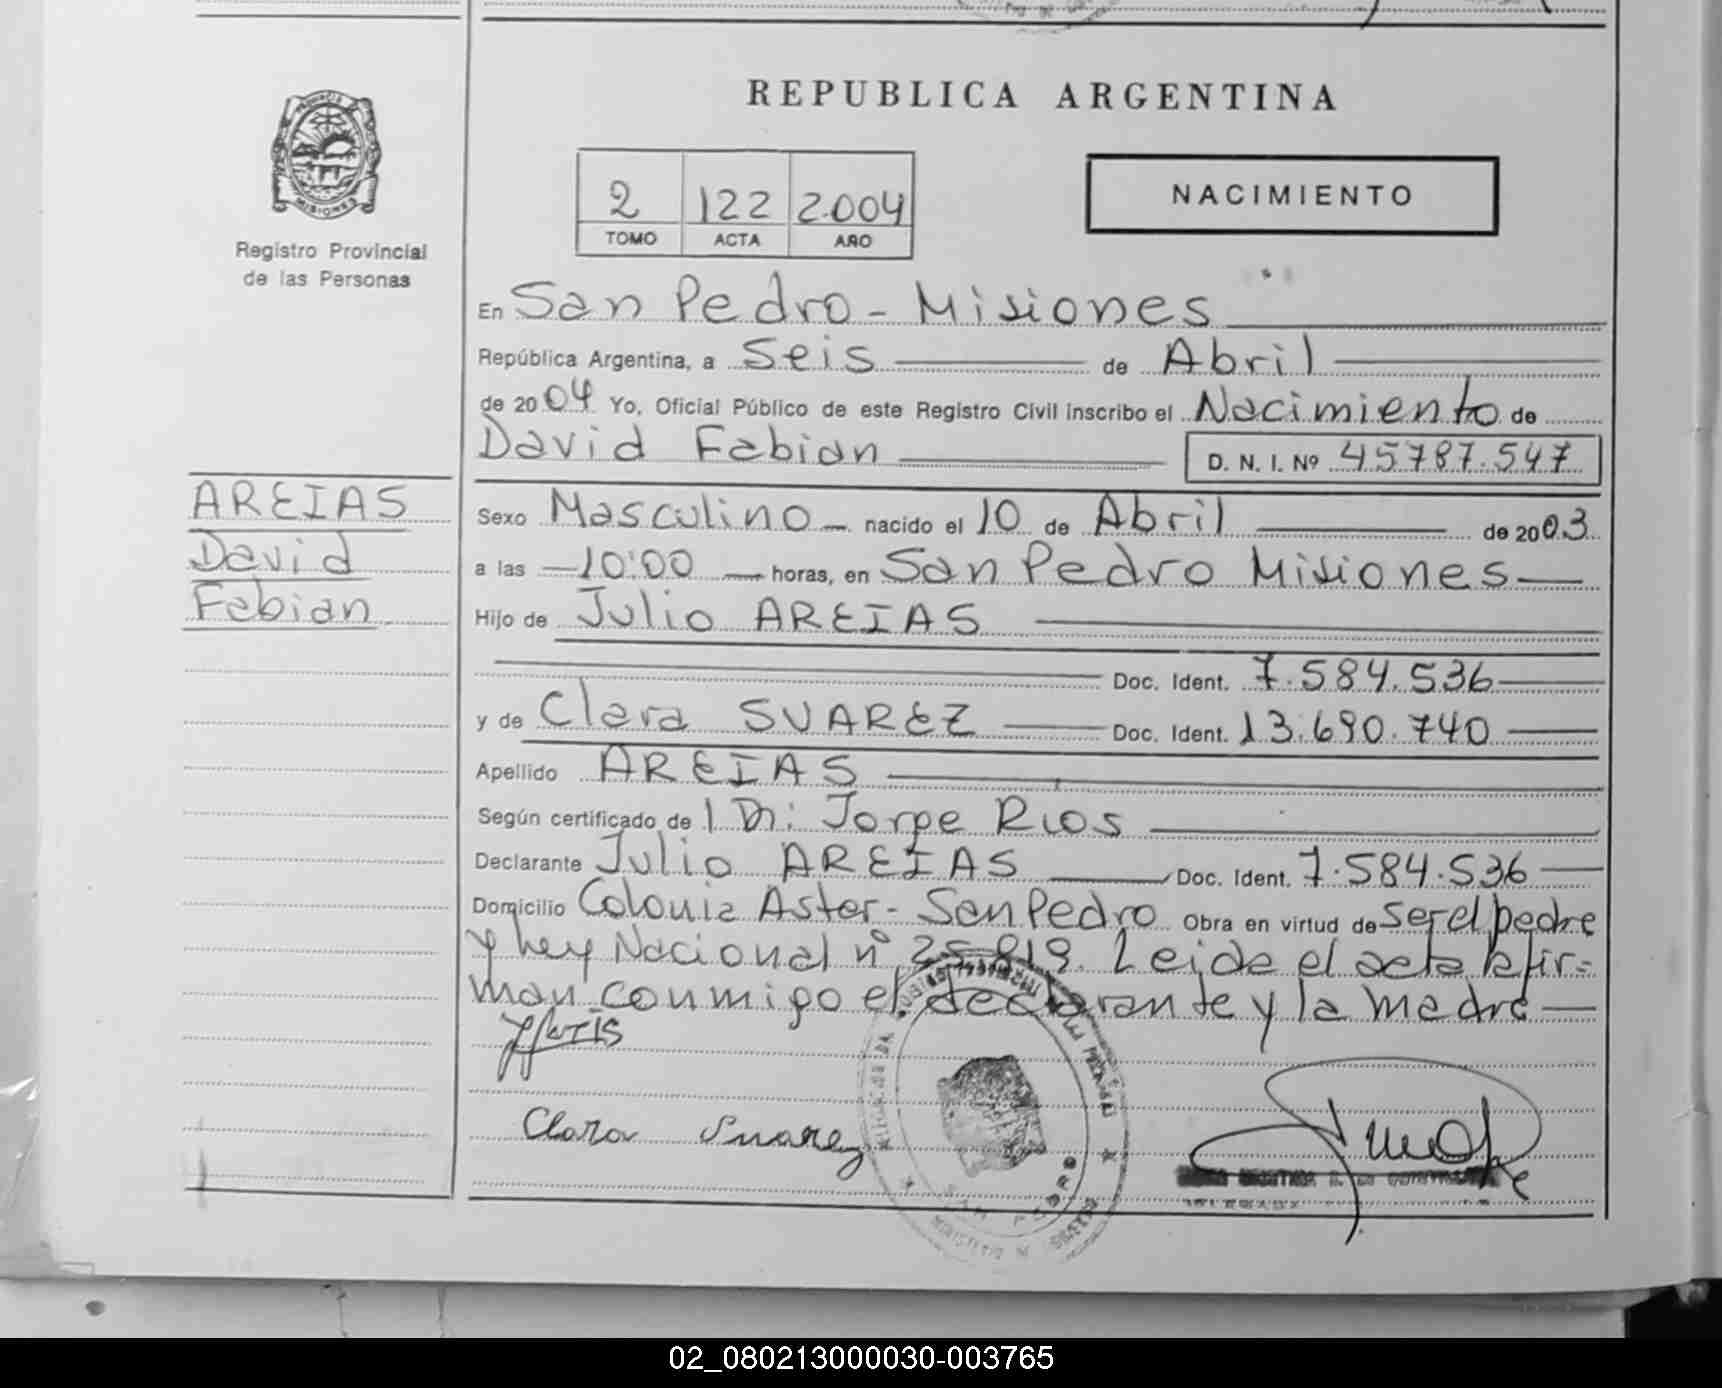 REPUBLICA ARGENTINA
PROVINCIA
MISIONES
Registro Provincial
de las Personas
2 122 2.004
TOMO ACTA AÑO
NACIMIENTO
En San Pedro - Misiones
República Argentina, a Seis de Abril
de 2004 Yo, Oficial Público de este Registro Civil inscribo el Nacimiento de
David Fabian D. N. I. Nº 45787.547
AREIAS
David
Fabian
Sexo Masculino nacido el 10 de Abril de 2003
a las 10:00 horas, en San Pedro Misiones
Hijo de Julio AREIAS
Doc. Ident. 7.584.536
y de Clara SUAREZ Doc. Ident. 13.690.740
Apellido AREIAS
Según certificado de Dr: Jorge Rios
Declarante Julio AREIAS Doc. Ident. 7.584.536
Domicilio Colonia Aster - San Pedro Obra en virtud de ser el padre
y ley Nacional nº 25.819. Leida el acta la fir=
man conmigo el declarante y la madre
Clara Suarez
SAN PEDRO
02_080213000030-003765